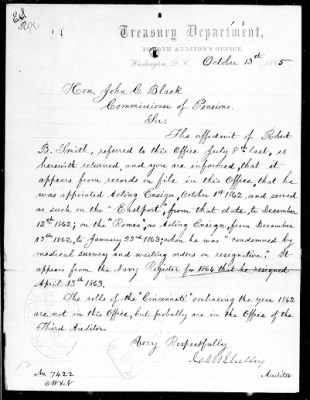 Treasury Department,
FOURTH AUDITOR'S OFFICE,
Washington, D. C. October 13th 1885
Hon. John C. Black
Commissioner of Pensions.
Sir:
The affidavit of Robert
B. Smith, referred to this Office July 8th last, is
herewith returned, and you are informed, that it
appears from records on file in this Office, that he
was appointed Acting Ensign, October 1st 1862, and served
as such on the "Eastport," from that date, to December
12th 1862; on the "Romeo" as Acting Ensign, from December
12th 1862, to January 23d 1863, when he was "condemned by
medical survey and waiting orders or resignation." It
appears from the Navy Register for 1864 that he resigned
April 13th 1863.
The rolls of the "Cincinnati" embracing the year 1862
are not in this Office, but probally are in the Office of the
Third Auditor.
Very Respectfully
Shelley
Auditor
No. 7422